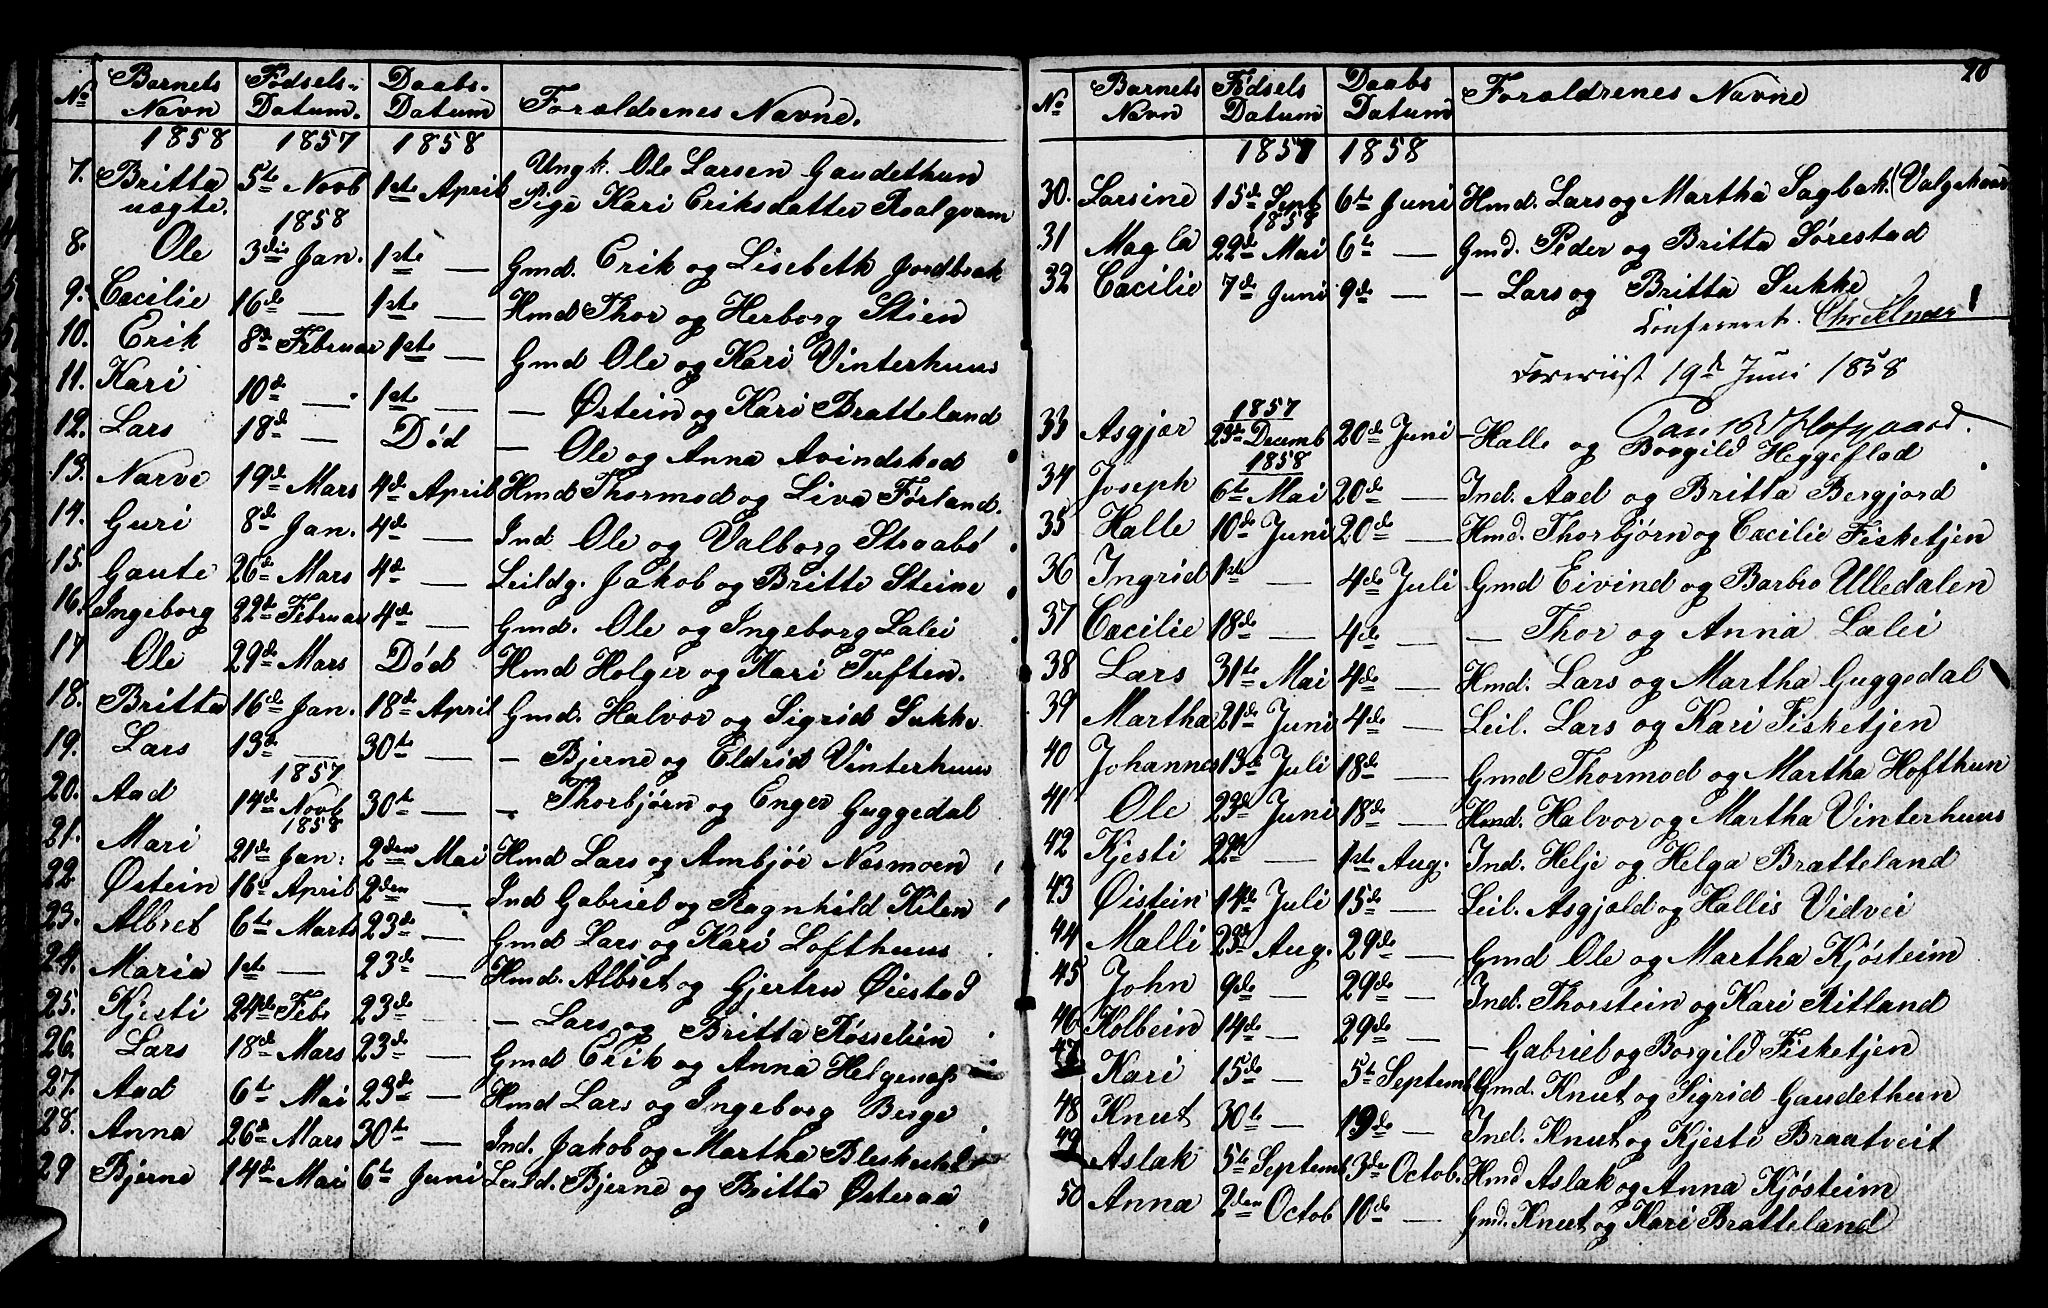 No Barnets Navn Fødsels-Datum. Daabs-Datum Forældrenes Navne.
1858 1857 1858
7. Britta uægte. 5te Novb 1ste April Ungk. Ole Larsen Gaudethun
Pige Kari Eriksdatter Roalqvam
1858
8. Ole 3die Jan. 1ste — Gmd. Erik og Lisebeth Jordbræk
9. Cæcilie 16de — 1ste — Hmd Thor og Herborg Stien
10. Erik 8de Februar 1ste — Gmd Ole og Kari Vinterhuus
11. Kari 10de — 1ste — — Østein og Kari Bratteland
12. Lars 18de — Død — Ole og Anna Avindskod
13. Narve 19de Mars 4de April Hmd Thormod og Liva Førland.
14. Guri 8de Jan. 4de — Ind Ole og Valborg Straabø
15. Gaute 26te Mars 4de — Leildg. Jakob og Britte Steine
16. Ingeborg 22de Februar 4de — Gmd. Ole og Ingeborg Lalei
17 Ole 29de Mars Død Hmd Holger og Kari Tuften.
18. Britta 16de Jan. 18de April Gmd. Halvor og Sigrid Sukke
19. Lars 13de — 30te — — Bjerne og Eldrid Vinterhuus
1857
20. Aad 14de Novb 30te — — Thorbjørn og Enger Guggedal
1858
21. Mari 21de Jan: 2den Mai Hmd Lars og Ambjør Næsmoen
22 Østein 16de April 2den — Ind Gabriel og Ragnhild Kilen
23. Albret 6te Marts 23de — Gmd Lars og Kari Lofthuus
24. Maria 1ste — 23de — Hmd. Albret og Gjertru Øiestad
25. Kjesti 24de Feb 23de — — Lars og Britta Røsselien
26. Lars 18de Mars 23de — Gmd Erik og Anna Helgenæss
27. Aad 6te Mai 23de — Hmd Lars og Ingeborg Berge
28. Anna 26de Mars 30te — Ind. Jakob og Martha
29 Bjerne 14de Mai 6te Juni Leild. Bjerne og Britta Østeraa
20
No Barnets Navn Fødsels Datum Daabs Datum Forældrenes Navne
1857 1858
30. Larsine 15de Sept 6te Juni Hmd. Lars og Martha Sagbak.
1858
31 Magla 22de Mai 6te — Gmd. Peder og Britta Sørestad
32 Cæcilie 7de Juni 9de — — Lars og Britta Sukke
Confereret.
Foreviist 19de Juni 1858
Hofgaard.
1857
33 Asgjær 23de Decemb 20de Juni — Halle og Borgild Heggeflad
1858
34 Joseph 6te Mai 20de — Ind. Aad og Britta Bergjord
35 Halle 10de Juni 20de — Hmd. Thorbjørn og Cæcilie Fisketjen
36 Ingrid 1ste — 4de Juli Gmd Eivind og Barbro Ulledalen
37 Cæcilie 18de — 4de — — Thor og Anna Lalei
38 Lars 31te Mai 4de — Hmd. Lars og Martha Guggedal
39 Martha 21de Juni 4de — Leil. Lars og Kari Fisketjen
40 Johannes 13de Juli 18de — Gmd Thormod og Martha Hofthun
41 Ole 23de Juni 18de — Hmd. Halvor og Martha Vinterhuus
42 Kjesti 22de — 1ste Aug. Ind. Helje og Helga Bratteland
43 Øistein 14de Juli 15de — Leil. Asgjald og Hallis Vidvei
44 Malli 23de Aug. 29de — Gmd Ole og Martha Kjösteim
45 John 9de — 29de — Ind. Thorstein og Kari Ritland
46 Kolbein 14de — 29de — — Gabriel og Borgild Fisketjen
47 Kari 15de — 5te Septemb Gmd. Knut og Sigrid Gaudethun
48 Knut 30te — 19de — Ind. Knut og Kjesti Braatveit
49 Aslak 5te Septemb 3de Octob. Hmd Aslak og Anna Kjösteim
50 Anna 2den Octob 10de — Gmd. Knut og Kari Bratteland